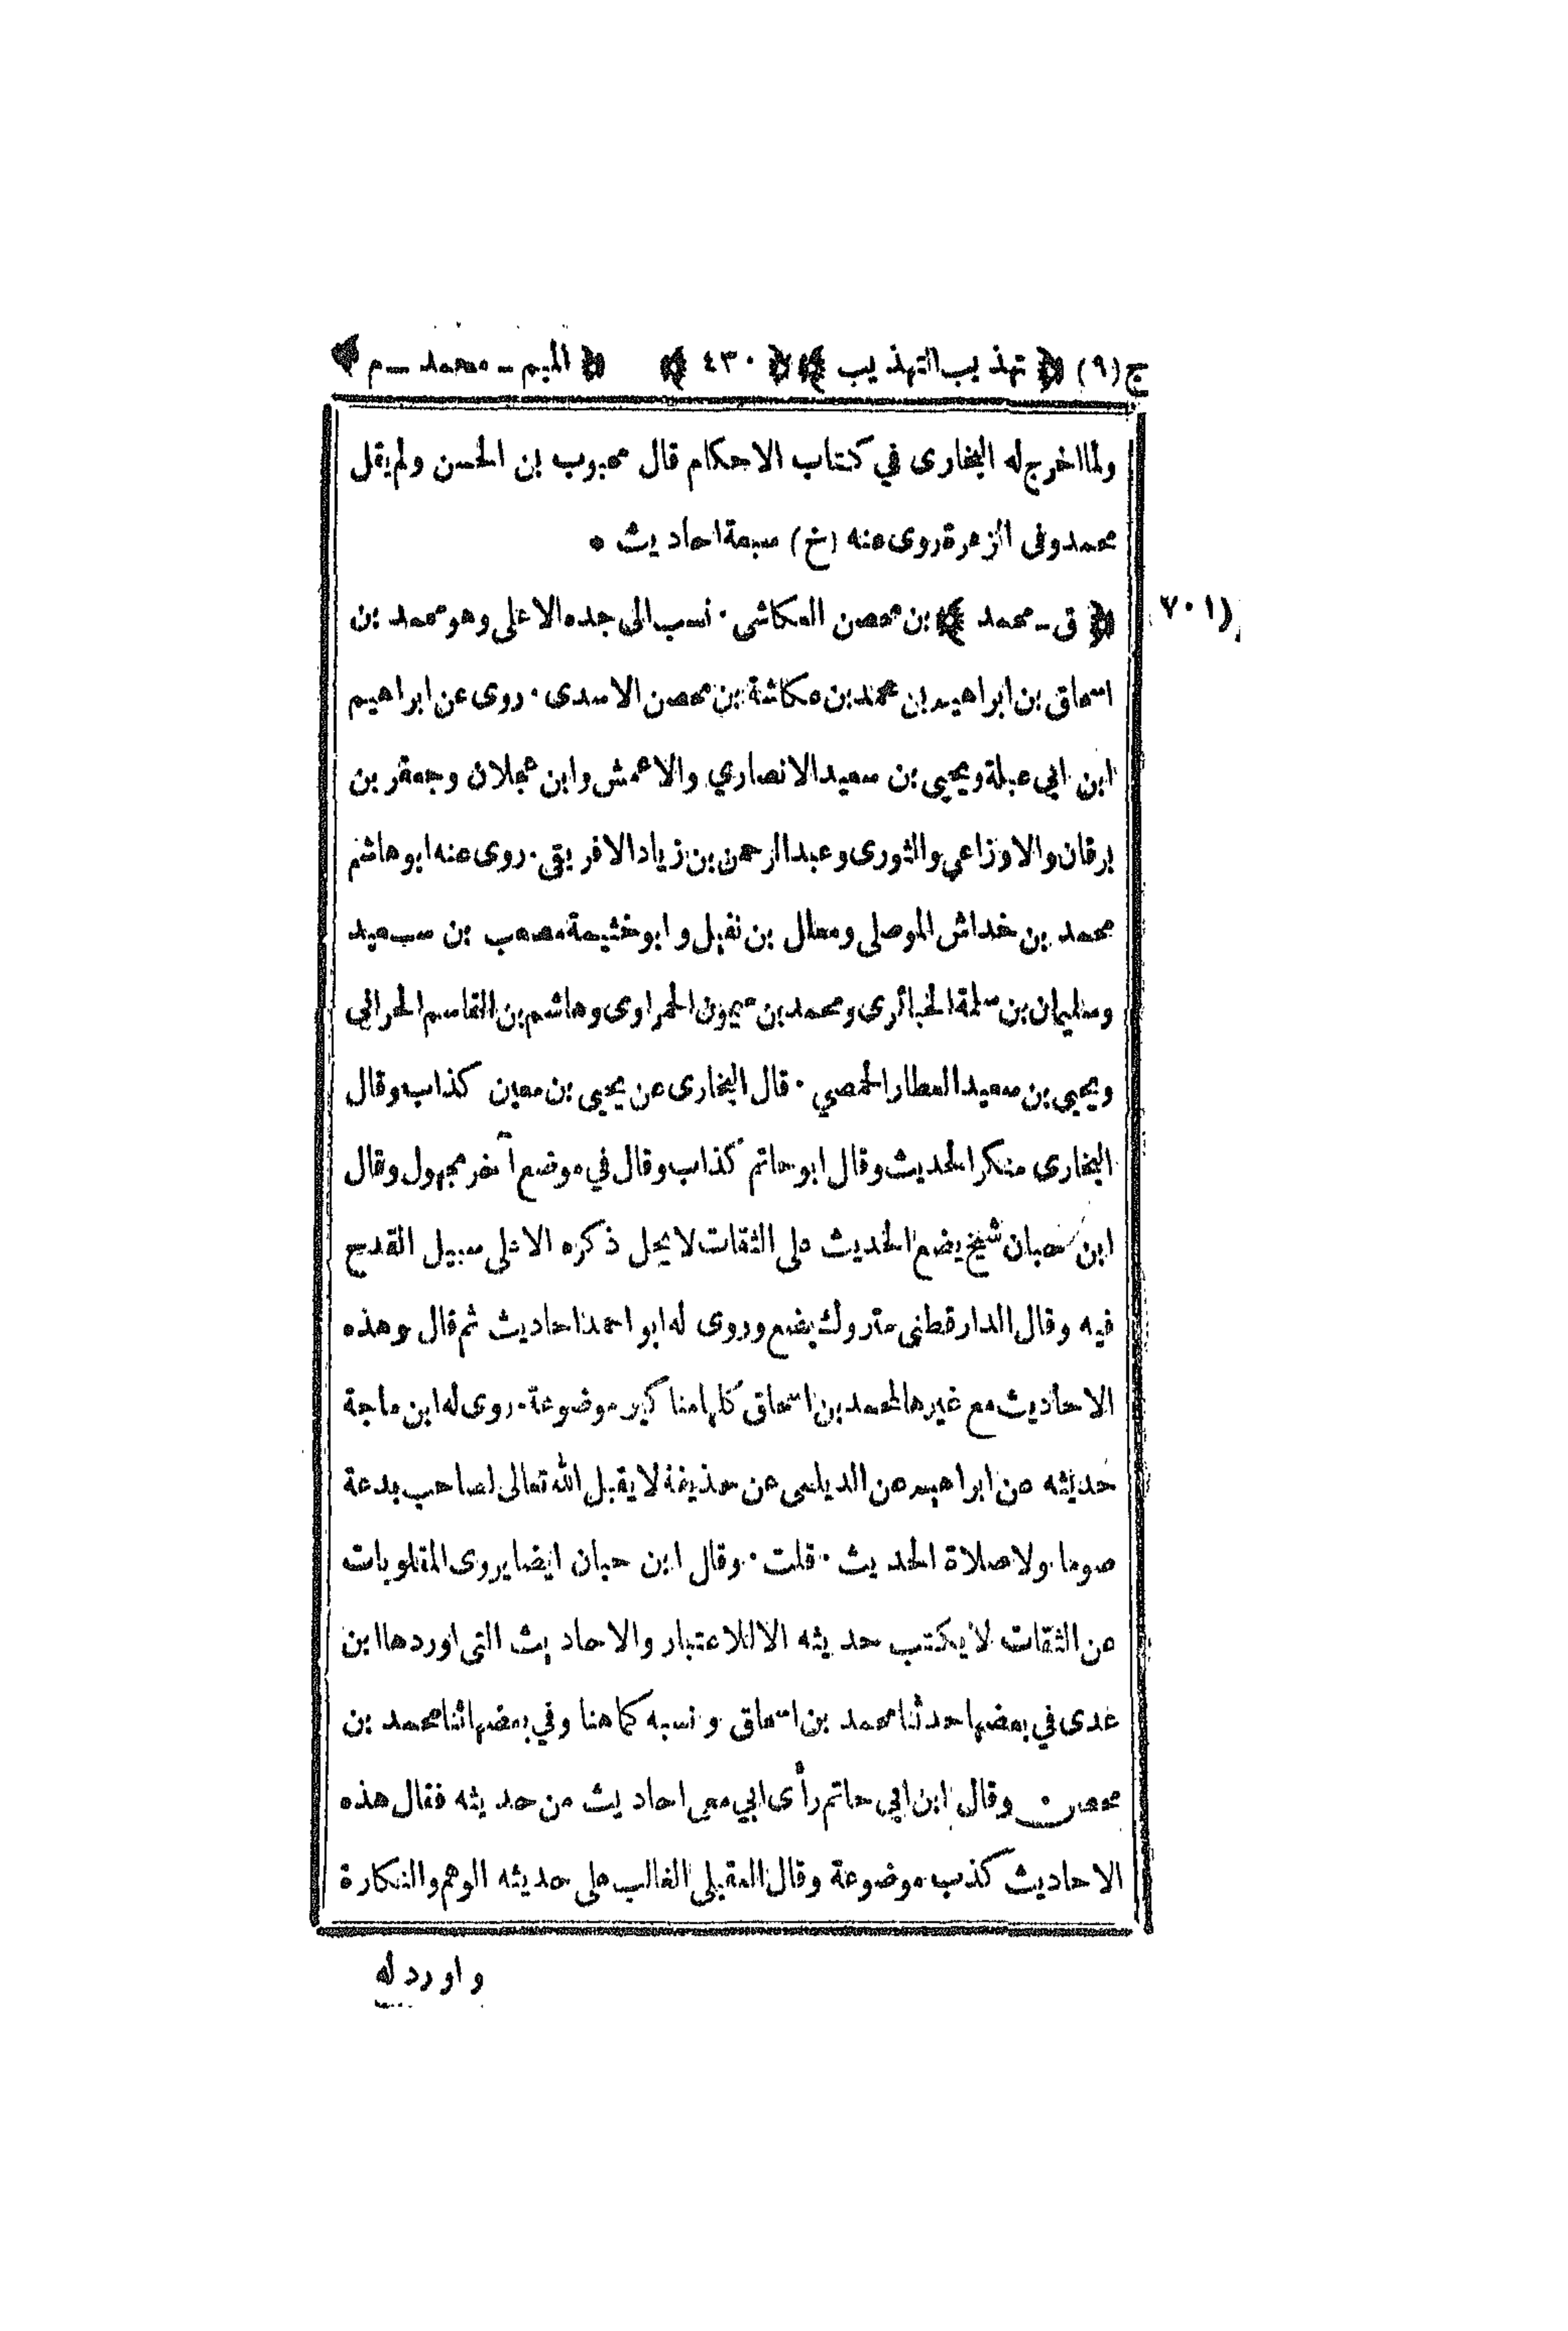 ج(٩) ﴿ تهذيب التهذيب ﴾ ﴿ ٤٣٠ ﴾ ﴿ الميم - محمد - م ﴾
ولما اخرج له البخارى في كتاب الاحكام قال محبوب بن الحسن ولم يقل
محمد وفى الزهرة روى عنه (خ) سبعة احاديث ٠
(٧٠١ ﴿ ق - محمد ﴾ بن محصن العكاشى٠ نسب الى جده الاعلى وهو محمد بن
اسحاق بن ابراهيم بن محمد بن عكاشة بن محصن الاسدى٠ روى عن ابراهيم
ابن ابي عبلة ويحيى بن سعيد الانصاري والاعمش وابن عجلان وجعفر بن
برقان والاوزاعي والثورى وعبد الرحمن بن زياد الافريقى٠ روى عنه ابو هاشم
محمد بن خداش الموصلى ومعلل بن نفيل وابو خثيمة مصعب بن سعيد
وسليمان بن سلمة الخبائرى ومحمد بن ميمون الحمراوى وهاشم بن القاسم الحرانى
ويحيى بن سعيد العطار الحمصي ٠ قال البخارى عن يحيى بن معين كذاب وقال
البخارى منكر الحديث وقال ابو حاتم كذاب وقال في موضع آخر مجهول وقال
ابن حبان شيخ يضع الحديث على الثقات لا يحل ذكره الا على سبيل القدح
فيه وقال الدارقطنى متروك يضع وروى له ابو احمد احاديث ثم قال وهذه
الاحاديث مع غيرها لمحمد بن اسحاق كلها مناكير موضوعة٠ روى له ابن ماجة
حديثه عن ابراهيم عن الديلمى عن حذيفة لا يقبل الله تعالى لصاحب بدعة
صوما ولا صلاة الحديث ٠ قلت ٠ وقال ابن حبان ايضا يروى المقلوبات
عن الثقات لا يكتب حديثه الا للاعتبار والاحاديث التى اوردها ابن
عدى في بعضها حدثنا محمد بن اسحاق ونسبه كما هنا وفي بعضها ثنا محمد بن
محصن ٠ وقال ابن ابي حاتم رأى ابي معى احاديث من حديثه فقال هذه
الاحاديث كذب موضوعة وقال العقيلى الغالب على حديثه الوهم والنكارة
واورد له